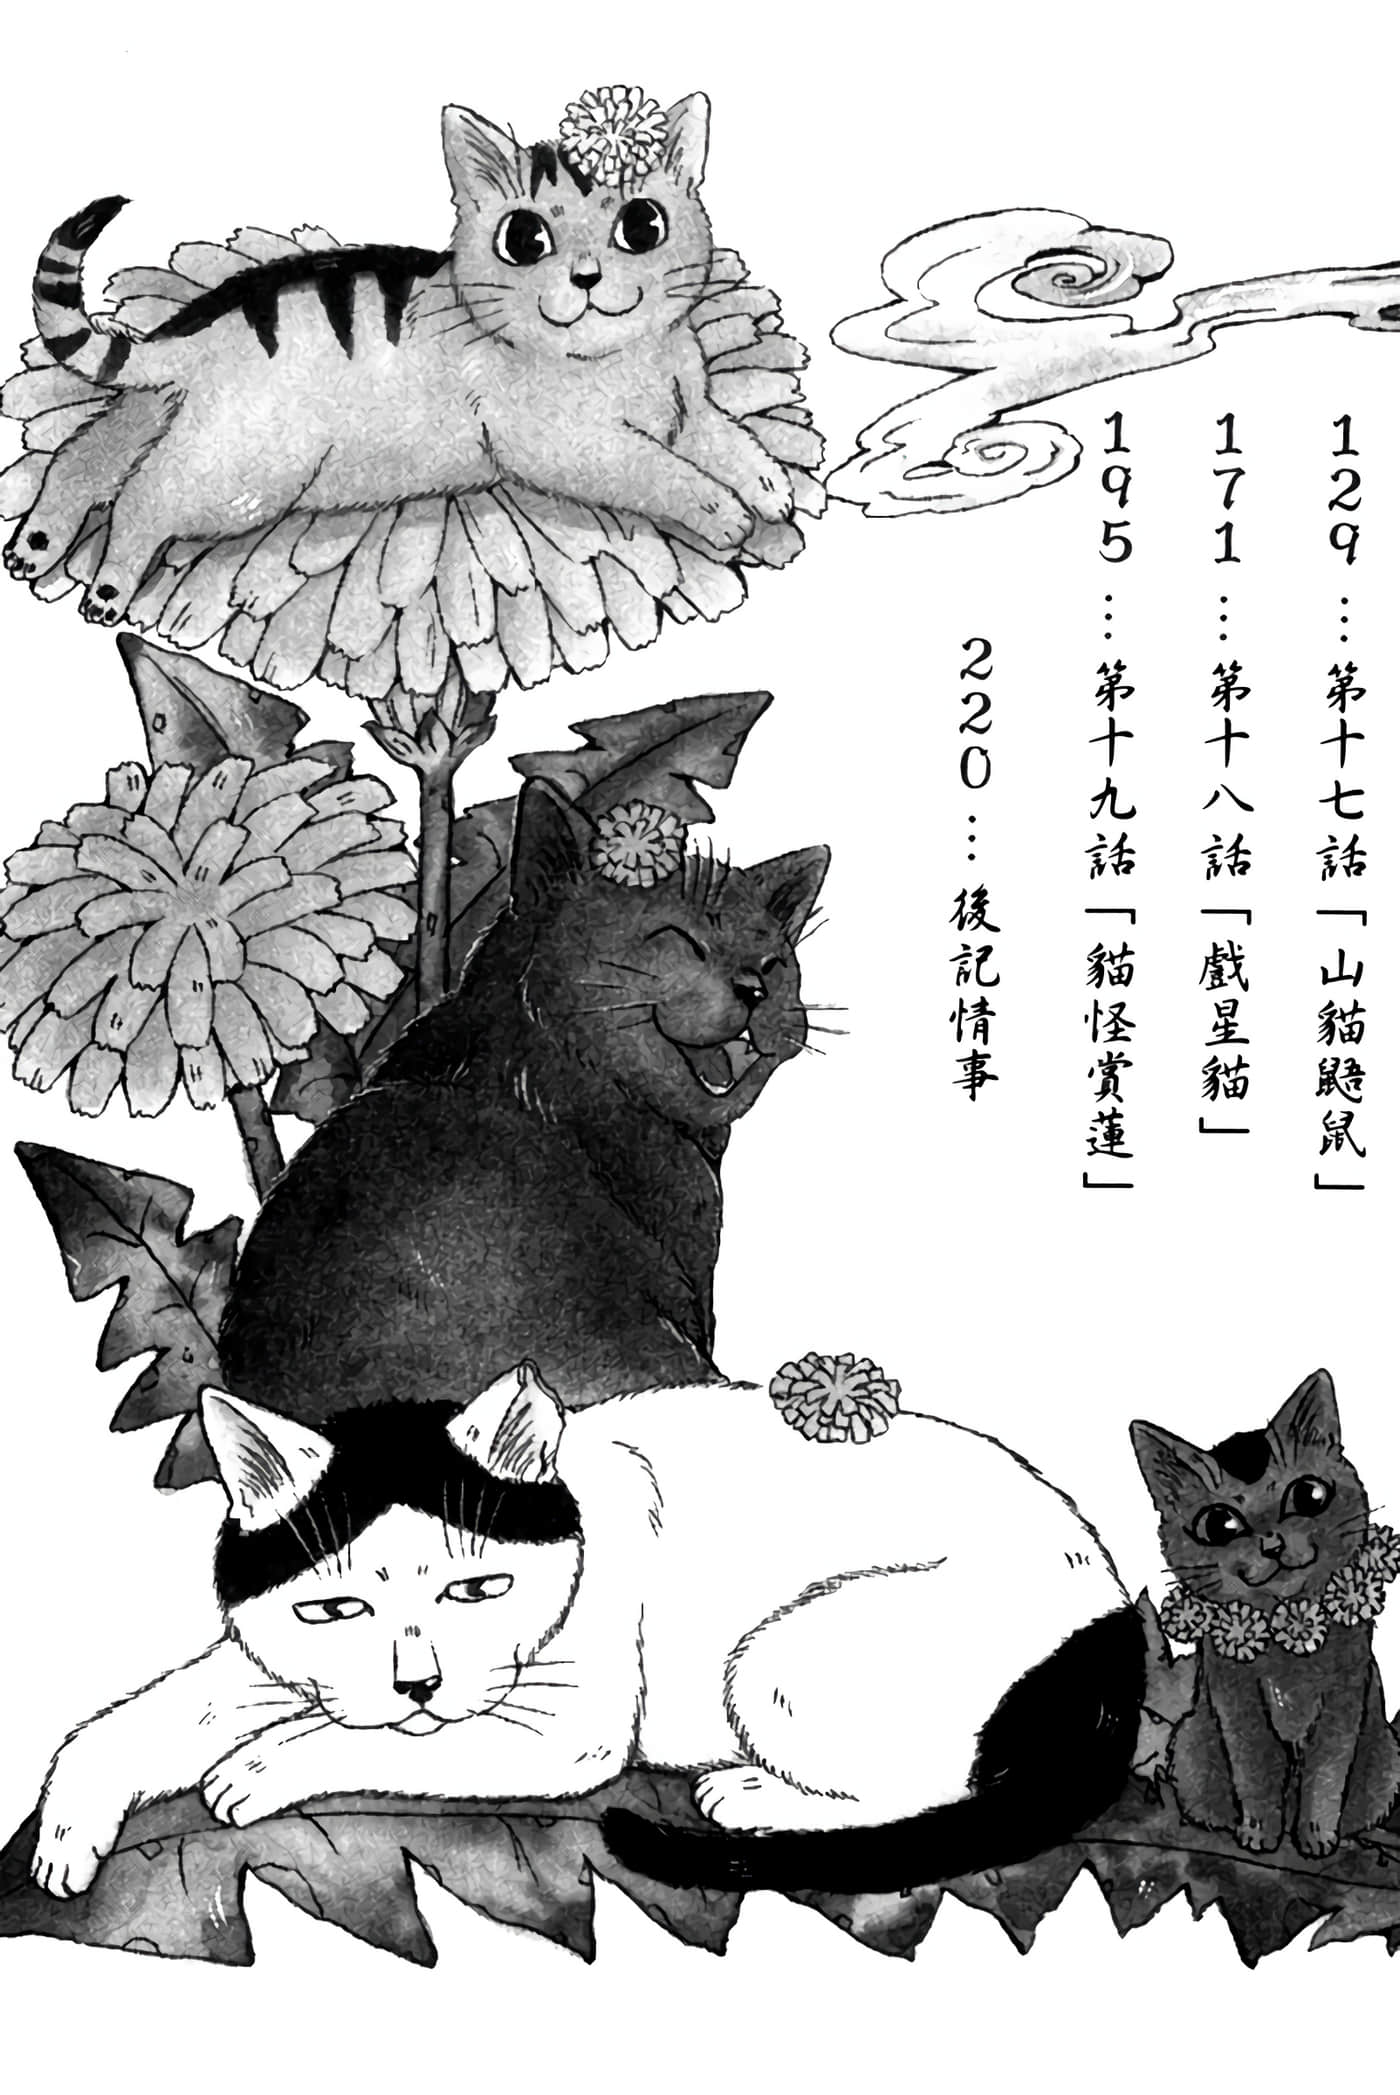 129…第十七話「山貓鼯鼠」
171…第十八話「戲星貓」
195…第十九話「貓怪賞蓮」
220…後記情事